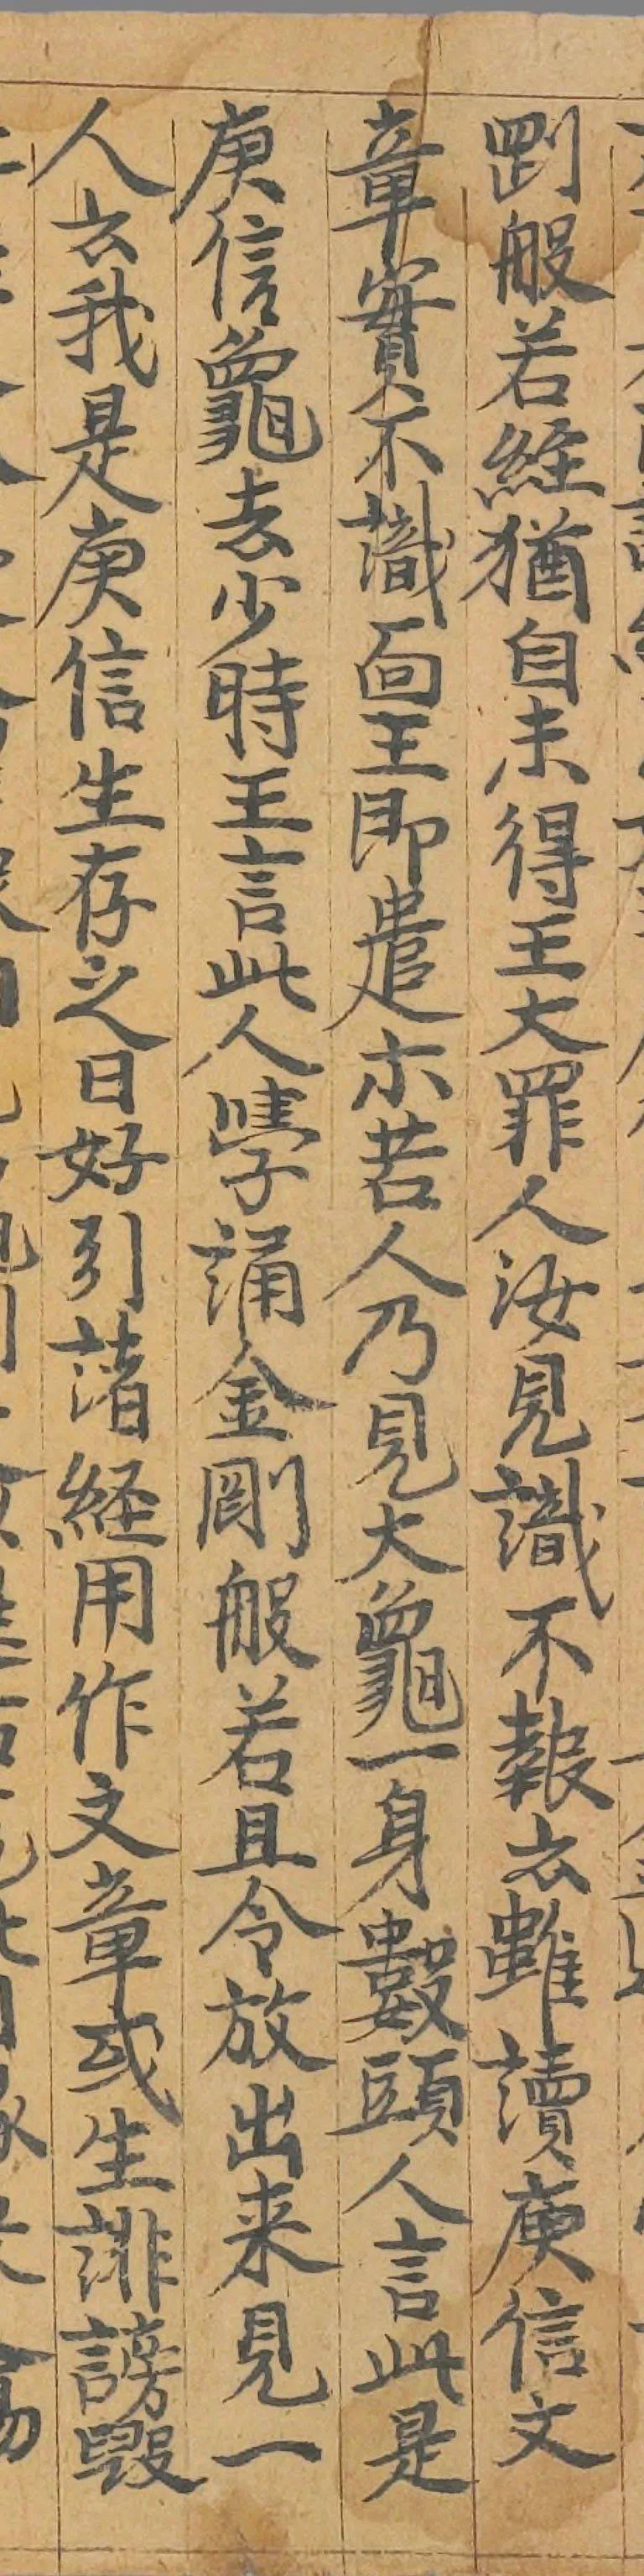 罸般若經猶自未得王大罪人汝見識不報云雖讀庾信文
章實不識面王即遣示若人乃見大龜一身數頭人言此是
庾信龜去少時王言此人學誦金剛般若且令放出来見一
人云我是庾信生存之日好引諸経用作文章或生誹謗毀